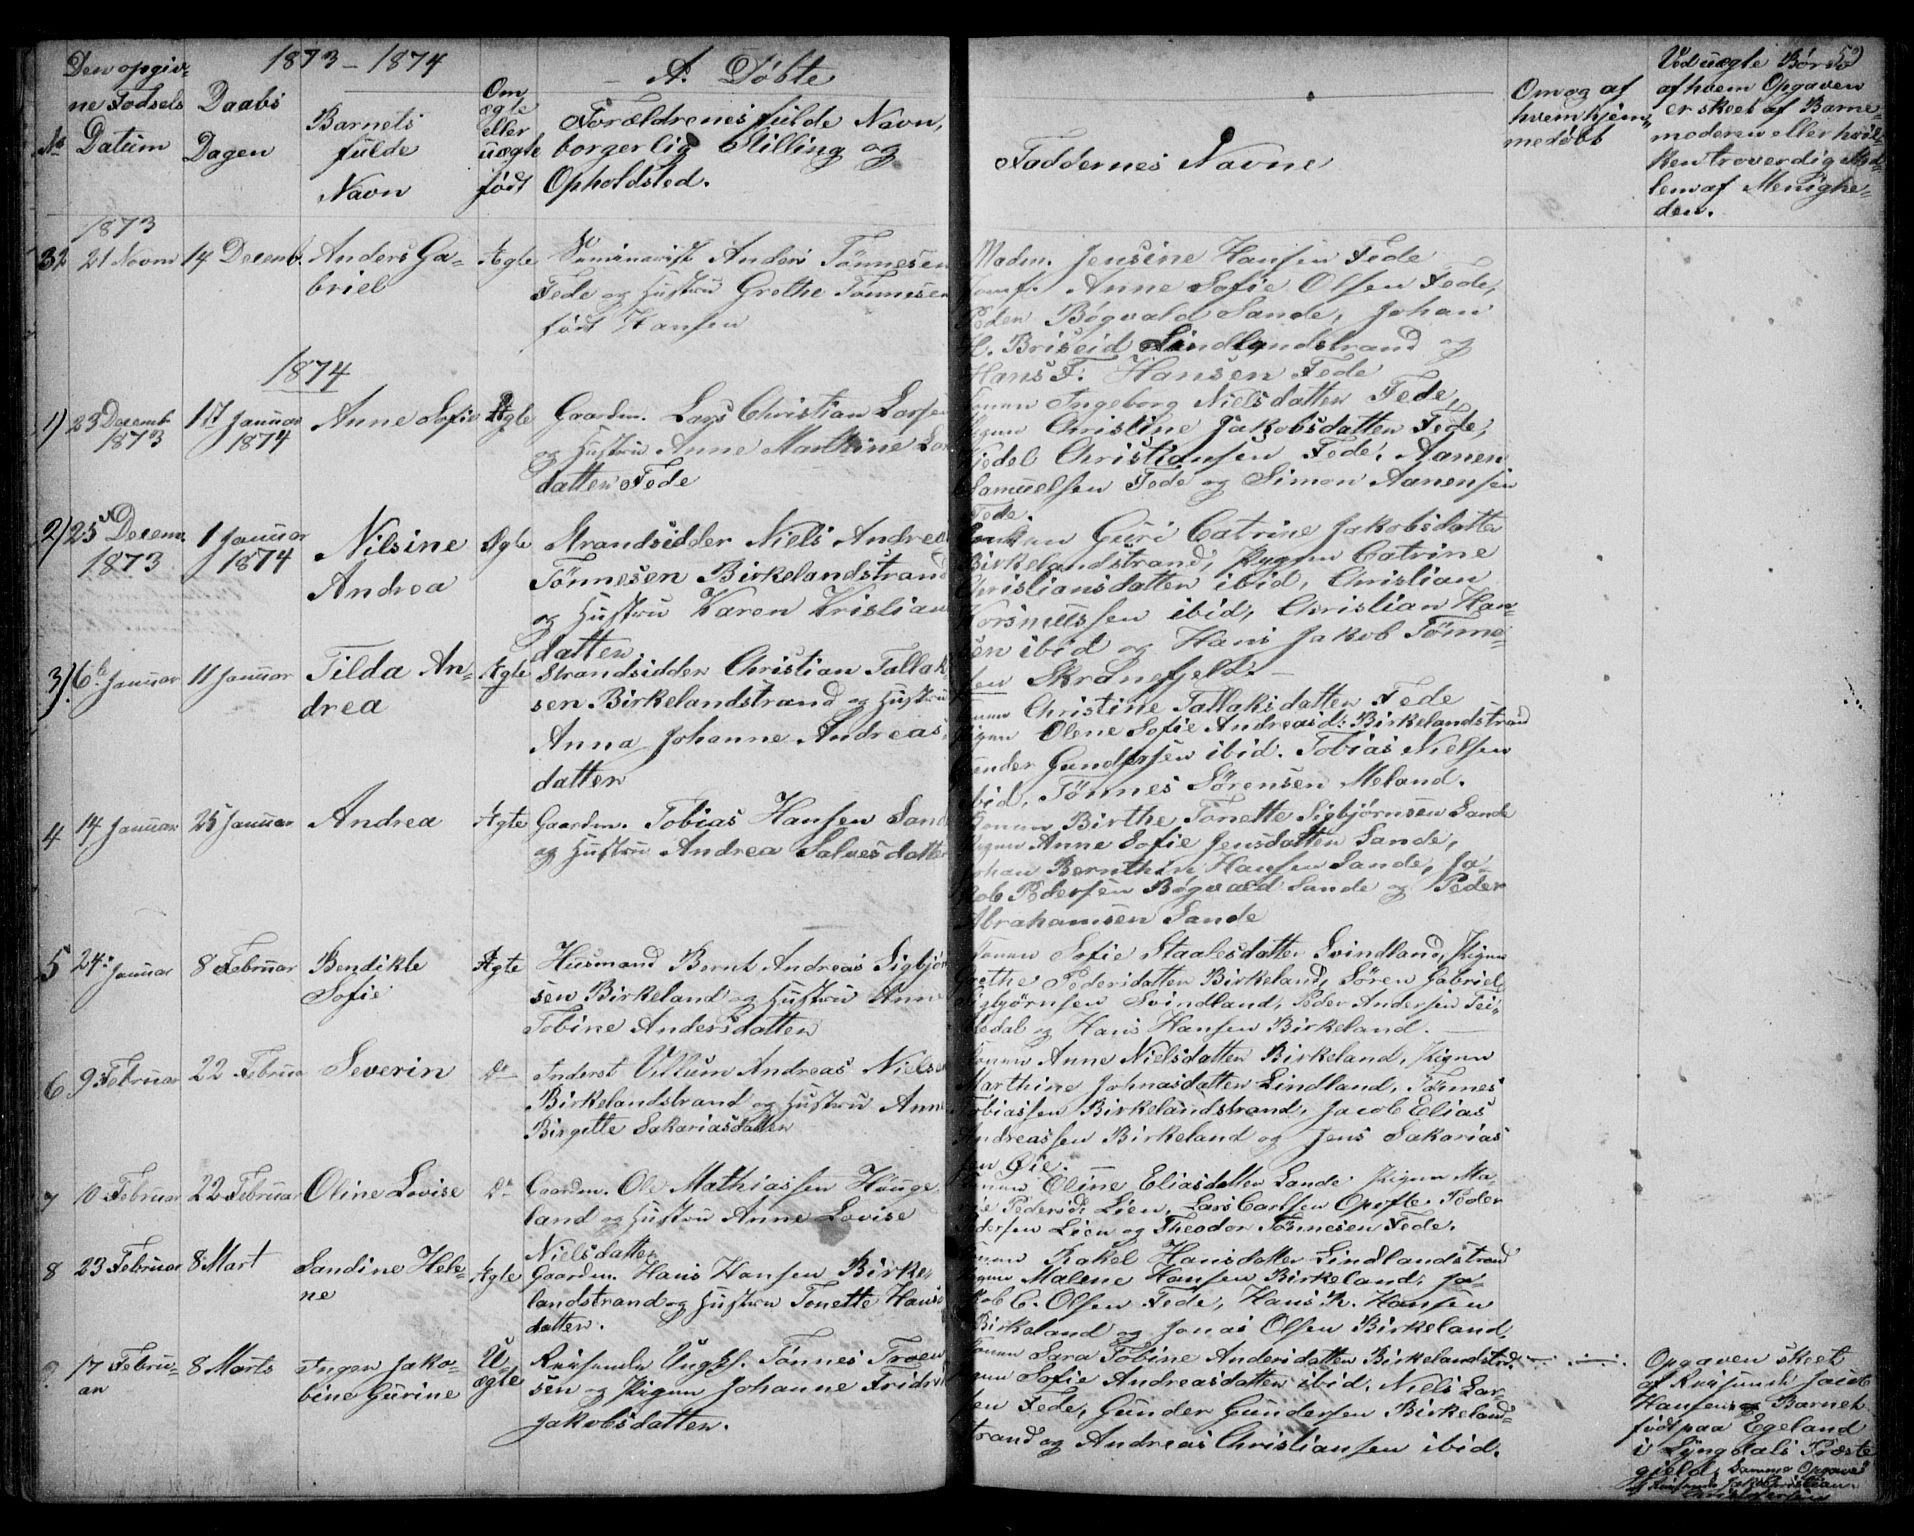 1873 – 1874
A. Døbte
52
No
Den opgiv-
ne Fødsels
Datum
Daabs
Dagen
Barnets
fulde
Navn
Om
ægte
eller
uægte
født
Forældrenes fulde Navn,
borgerlig Stilling og
Opholdsted.
Faddernes Navne
Om og af
hvem hjem-
medøbt
Ved uægte Børn
af hvem Opgaven
er skeet af Barne-
moderen eller hvil-
ken troverdig Med-
lem af Menighe-
den.
1873
32 21 Novm 14 Decemb. Anders Ga-
briel
Ægte Seminarist Anders Tønnesen
Fede og Hustru Grethe Tønnesen
født Hansen
Madm. Jensine Hansen Fede
Anne Sofie Olsen Fede,
Peder Bøgvald Sande, Johan
H. Briseid Lindlandstrand og
Hans F. Hansen Fede
1874
1) 23 Decemb 1873
1 Januar 1874
Anne Sofie Ægte Gaardm. Lars Christian Larsen
og Hustru Anne Marthine
datter Fede
Konen Ingeborg Nielsdatter Fede,
Pigen Christine Jakobsdatter Fede,
Kjedel Christiansen Fede, Aanen
Samuelsen Fede og Simon Aanensen
Fede.
2) 25 Decem. 1873
1 Januar 1874
Nilsine
Andrea
Ægte Strandsidder Niels Andreas
Tønnesen Birkelandstrand
og Hustru Karen Kristians
datter
Guri Catrine Jakobsdatter
Birkelandstrand, Pigen Catrine
Christiansdatter ibid, Christian
ibid, Christian Han-
sen ibid og Hans Jakob Tønne-
sen Skranefjeld. –
3) 6 Januar 11 Januar Tilda An-
drea
Ægte Strandsidder Christian Tallak
sen Birkelandstrand og Hustru
Anna Johanne Andreas
datter
Konen Christine Tallaksdatter Fede
Pigen Olene Sofie Andreasd: Birkelandstrand
Gunder Gundersen ibid. Tobias Nielsen
ibid, Tønnes Sørensen Meland.
4 14 Januar 25 Januar Andrea Ægte Gaardm. Tobias Hansen Sande
og Hustru Andrea Salvesdatter
Konen Birthe Tonette Sigbjørnsen Sande
Pigen Anne Sofie Jensdatter Sande,
Johan Bernthin Hansen Sande, Ja-
kob Pedersen Bøgvald Sande og Peder
Abrahamsen Sande
5 24 Januar 8 Februar Bendikte
Sofie
Ægte Husmand Bernt Andreas Sigbjørn
sen Birkeland og Hustru Anne
Tobine Andersdatter
Konen Sofie Staalesdatter Svindland, Pigen
Grethe Pedersdatter Birkeland, Søren Gabriel
Sigbjørnsen Svindland, Peder Andersen Fei-
dedal og Hans Hansen Birkeland.
6 9 Februar 22 Februar Severin Do Inderst Villum Andreas Nielsen
Birkelandstrand og Hustru Anne
Birgitte Sakariasdatter
Konen Anne Nielsdatter Birkeland, Pigen
Marthine Johnasdatter Lindland, Tønnes
Tobiassen Birkelandstrand, Jacob Elias
Andreassen Birkeland og Jens Sakarias
sen Øie. –
7 10 Februar 22 Februar Oline Lovise Do Gaardm. Ole Mathiassen Hauge
land og Hustru Anne Lovise
Nielsdatter
Konen Oline Eliasdatter Sande Pigen Ma-
rie Pedersd: Lien, Lars Carlsen Opofte. Peder
Pedersen Lien og Theodor Tønnesen Fede.
8 23 Februar 8 Mart Sandine Hele-
ne
Ægte Gaardm. Hans Hansen Birke
landstrand og Hustru Tonette Hans
datter.
Konen Rakel Hansdatter Lindlandstrand
Pigen Malene Hansen Birkeland, Ja-
kob C. Olsen Fede, Hans R. Hansen
Birkeland og Jonas Olsen Birkeland.
9 17 Febru-
ar
8 Marts Inger Jako-
bine Gurine
U
ægte Reisende Ungk. Tønnes Troen
sen og Pigen Johanne Fridrik
Jakobsdatter.
Konen Sara Tobine Andersdatter Birkelandstrd.
Pigen Sofie Andreasdatter ibid, Niels Lar-
sen Fede, Gunder Gundersen Birkeland-
strand og Andreas Christiansen ibid.
Opgaven skeet
af Reisende Jacob
Hansen og Barnet
født paa Egeland
i Lyngdals Præste
gield. Samme Opgave
af Reisende Jakob Kristian
Christophersen